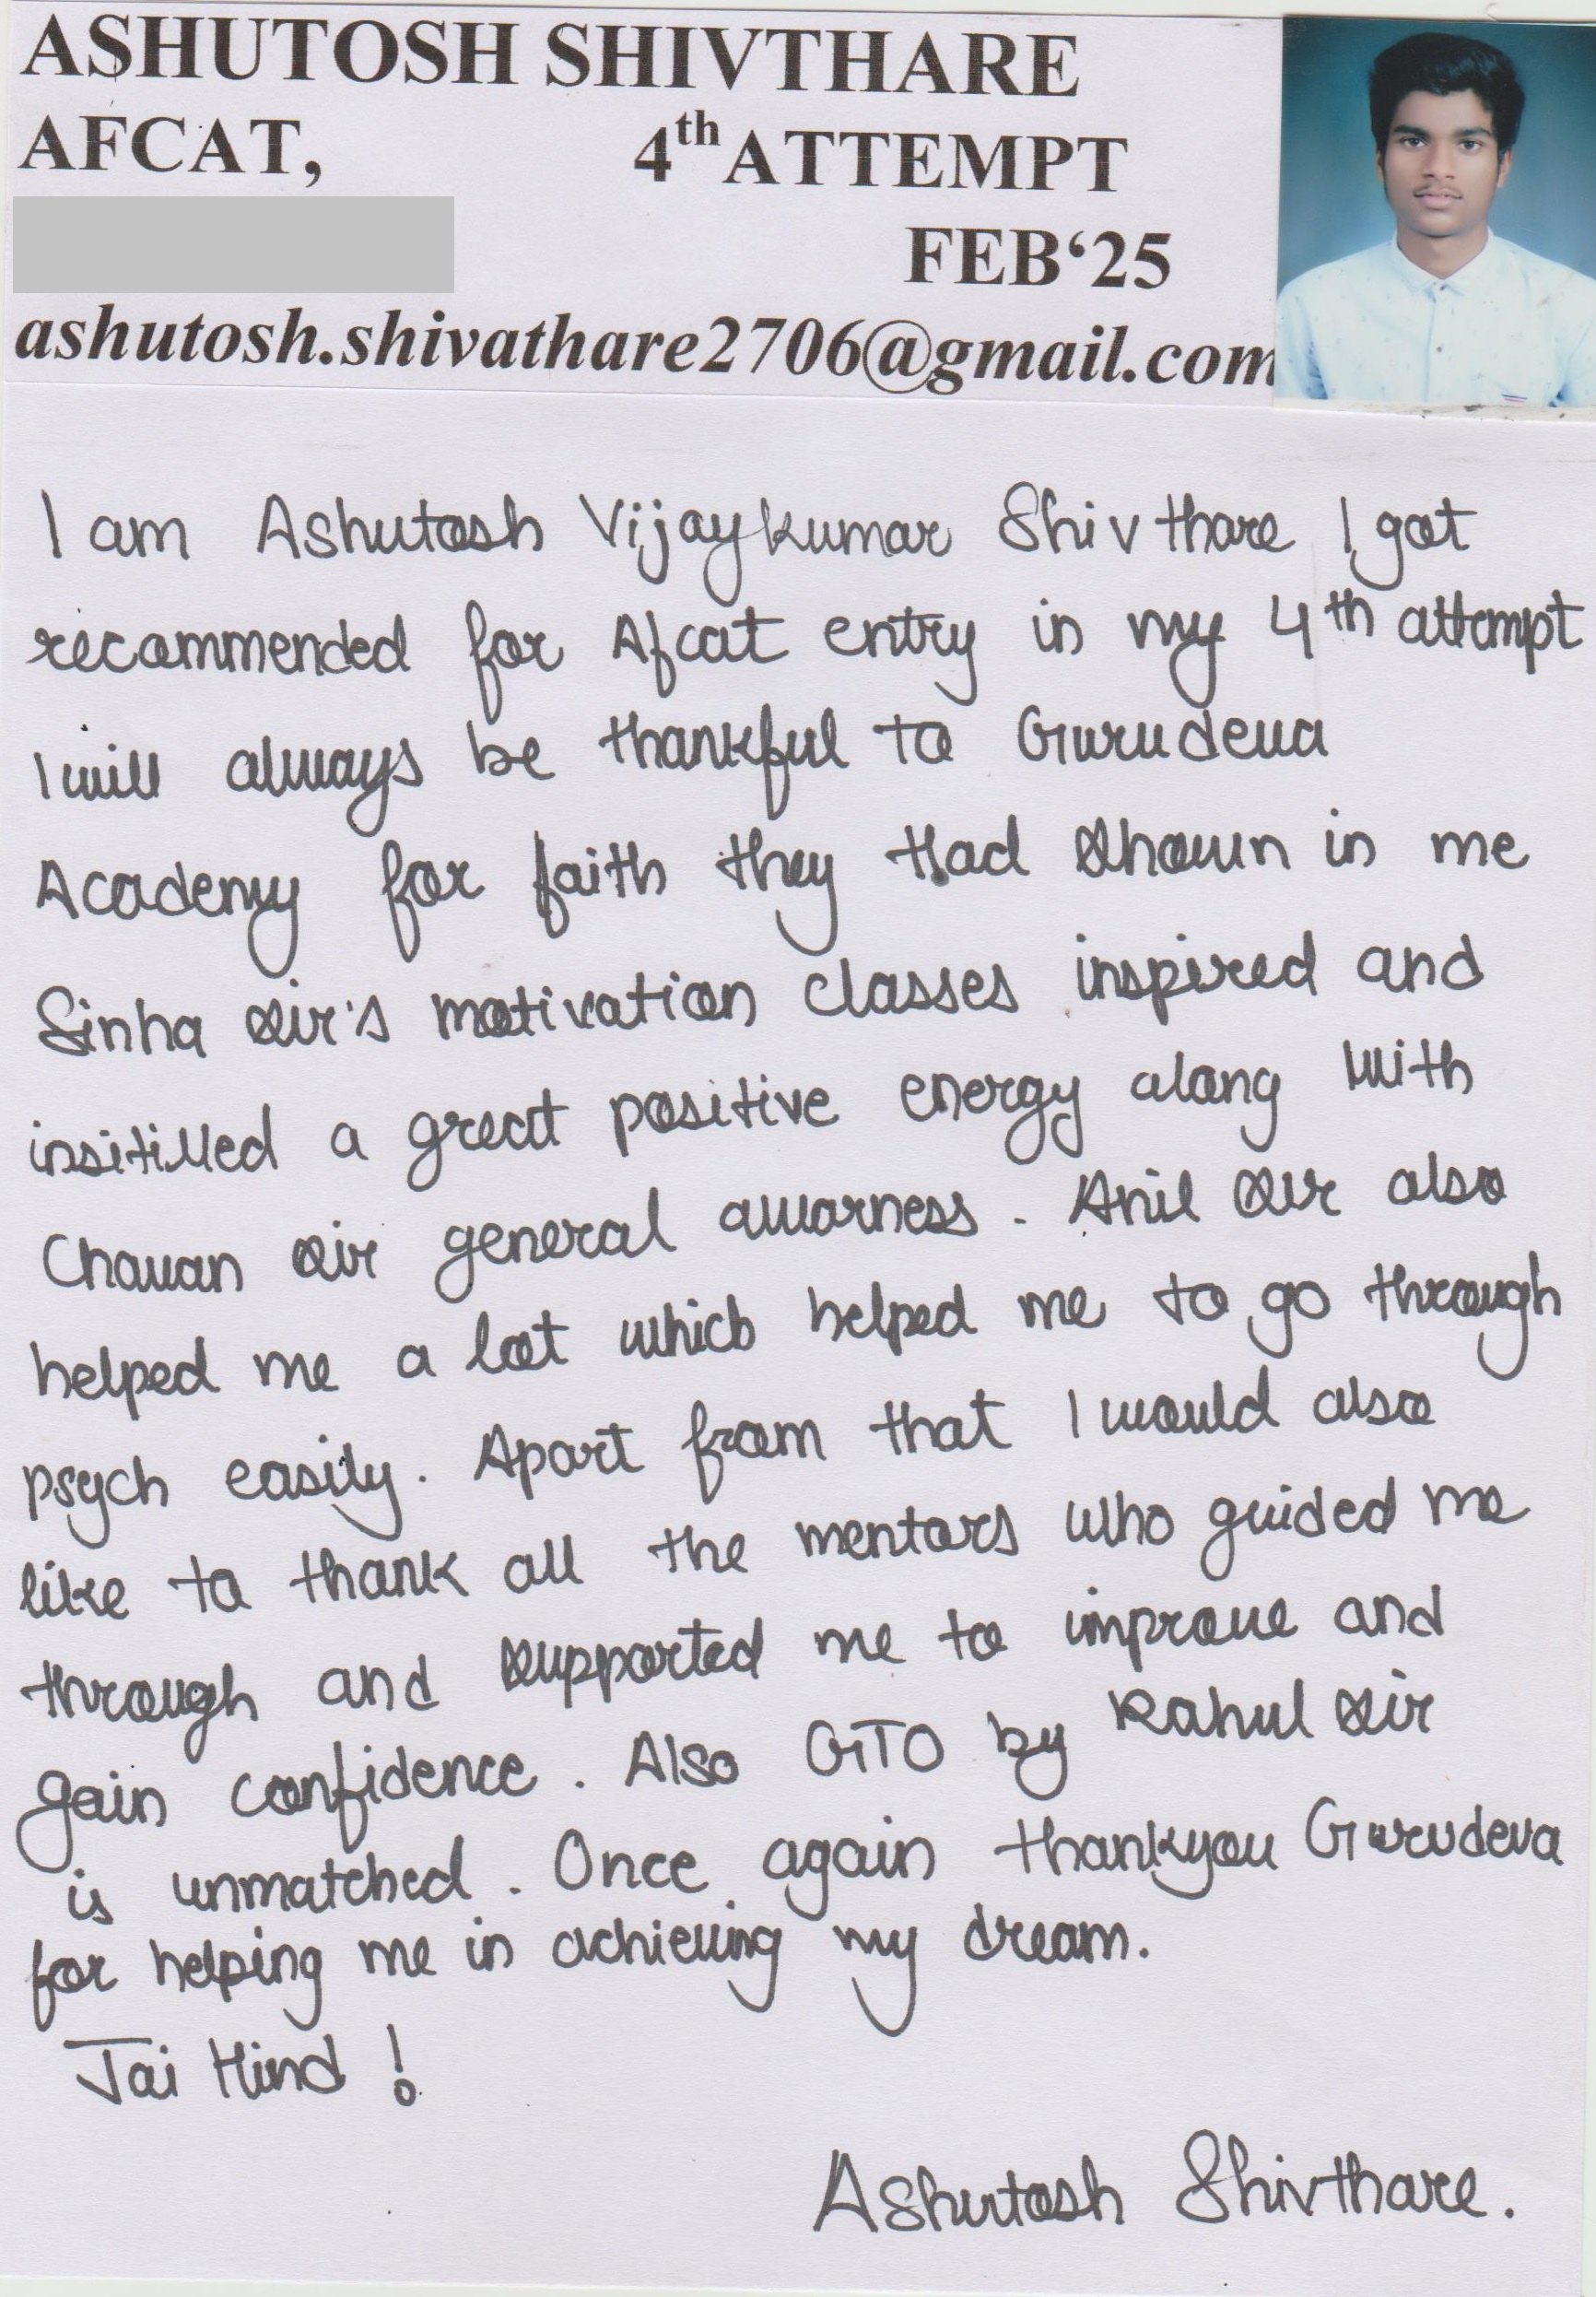 ASHUTOSH SHIVTHARE
AFCAT, 4th ATTEMPT
FEB‘25
ashutosh.shivathare2706@gmail.com
I am Ashutosh Vijaykumar Shivthare I got
recommended for Afcat entry in my 4th attempt
I will always be thankful to Gurudeva
Academy for faith they Had shown in me
Sinha sir's motivation classes inspired and
insitilled a great positive energy along with
Chavan sir general awarness. Anil sir also
helped me a lot which helped me to go through
psych easily. Apart from that I would also
like to thank all the mentors who guided me
through and supported me to improve and
gain confidence. Also GTO by Rahul sir
is unmatched. Once again thankyou Gurudeva
for helping me in achieving my dream.
Jai Hind !
Ashutosh Shivthare.